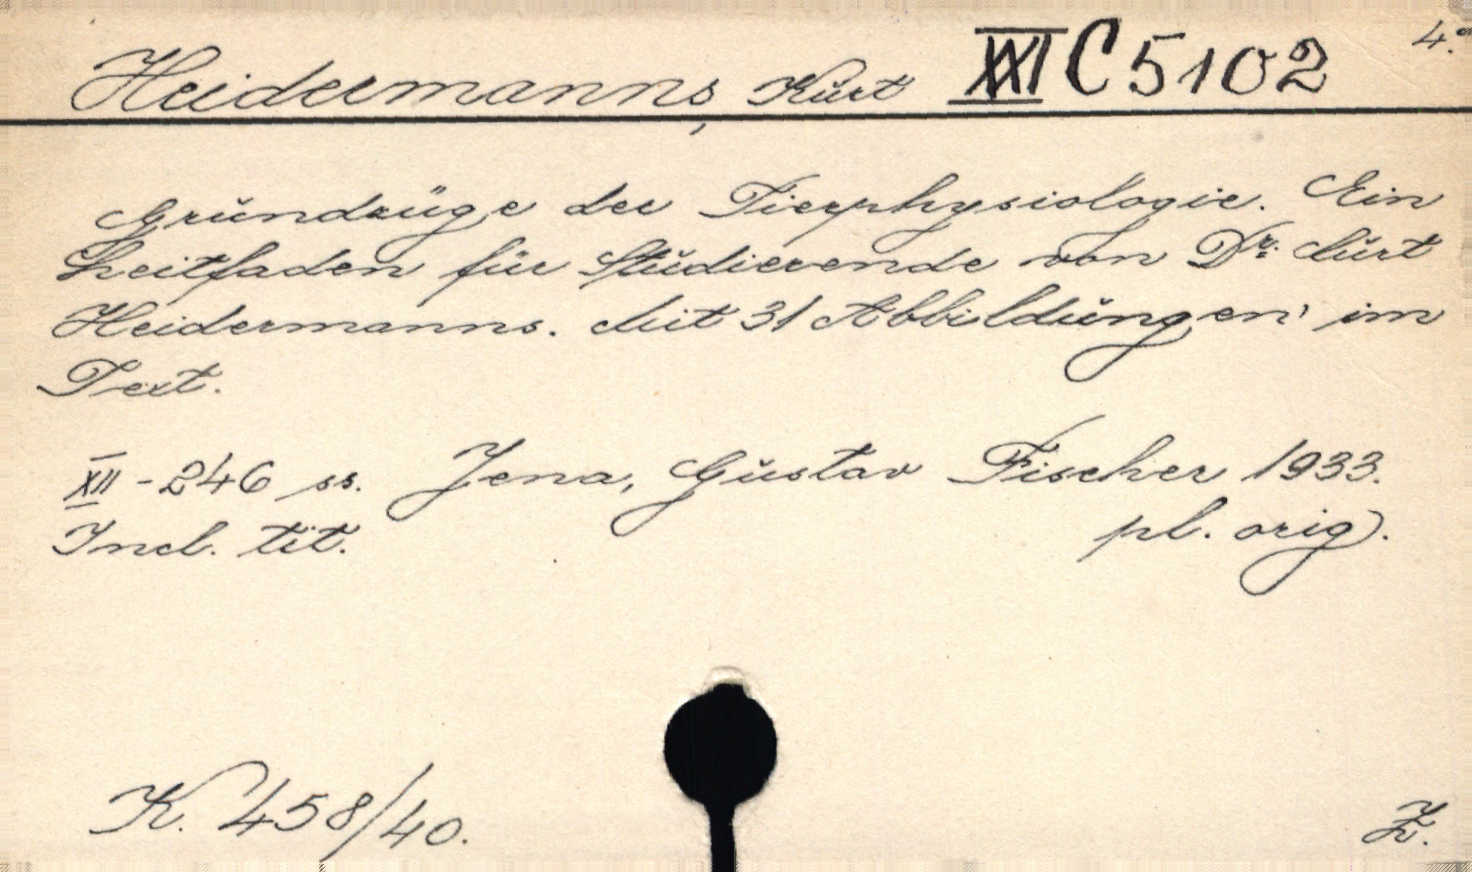 Heidermanns, Kurt XXI C 5102 4.°
Grundzüge der Tierphysiologie. Ein
Leitfaden für Studierende von Dr. Curt
Heidermanns. Mit 31 Abbildungen im
Text.
XII - 246 ss. Jena, Gustav Fischer 1933.
Incl. tit. pl. orig).
K. 458/40.
Z.